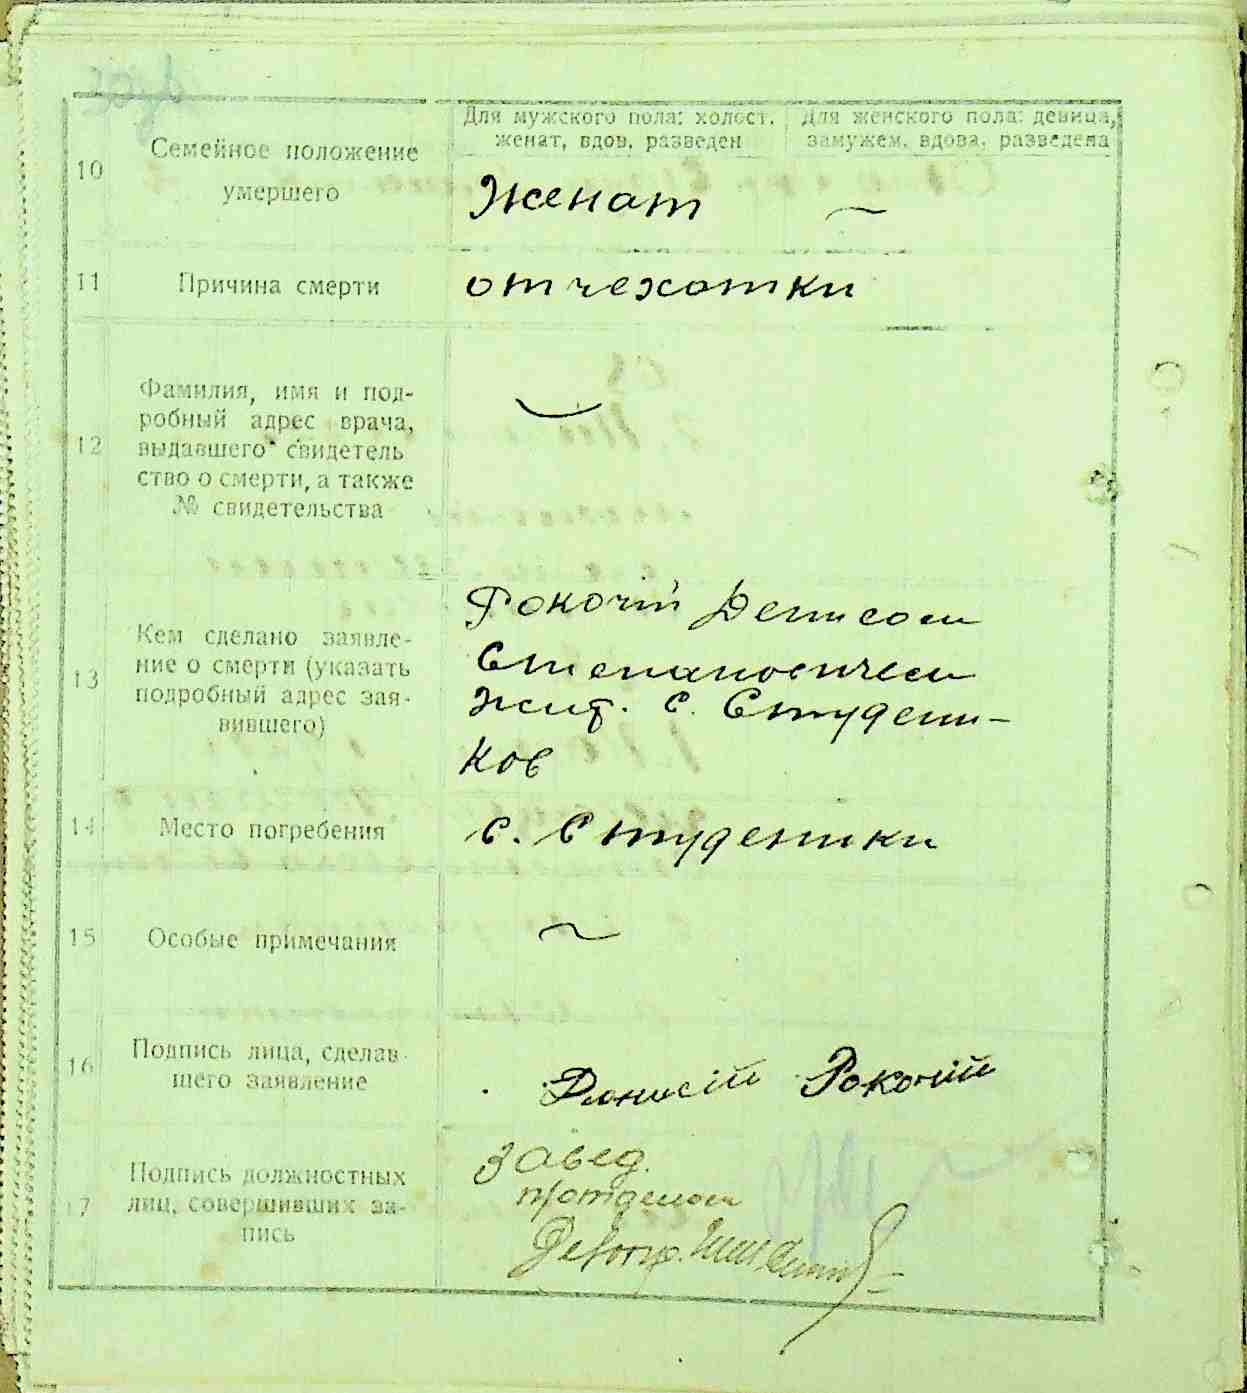 Для мужского пола: холост,
женат, вдов, разведен
Для женского пола: девица,
замужем, вдова, разведена
10
Семейное положение
умершего
Женат
11
Причина смерти
от чехотки
12
Фамилия, имя и под-
робный адрес врача,
выдавшего свидетель
ство о смерти, а также
№ свидетельства
13
Кем сделано заявле-
ние о смерти (указать
подробный адрес зая-
вившего)
Рокочій Денисом
Степановичем
жит. с. Студени-
ков
14
Место погребения
с. Студеники
15
Особые примечания
16
Подпись лица, сделав-
шего заявление
Рокочій
17
Подпись должностных
лиц, совершивших за-
пись
Завед.